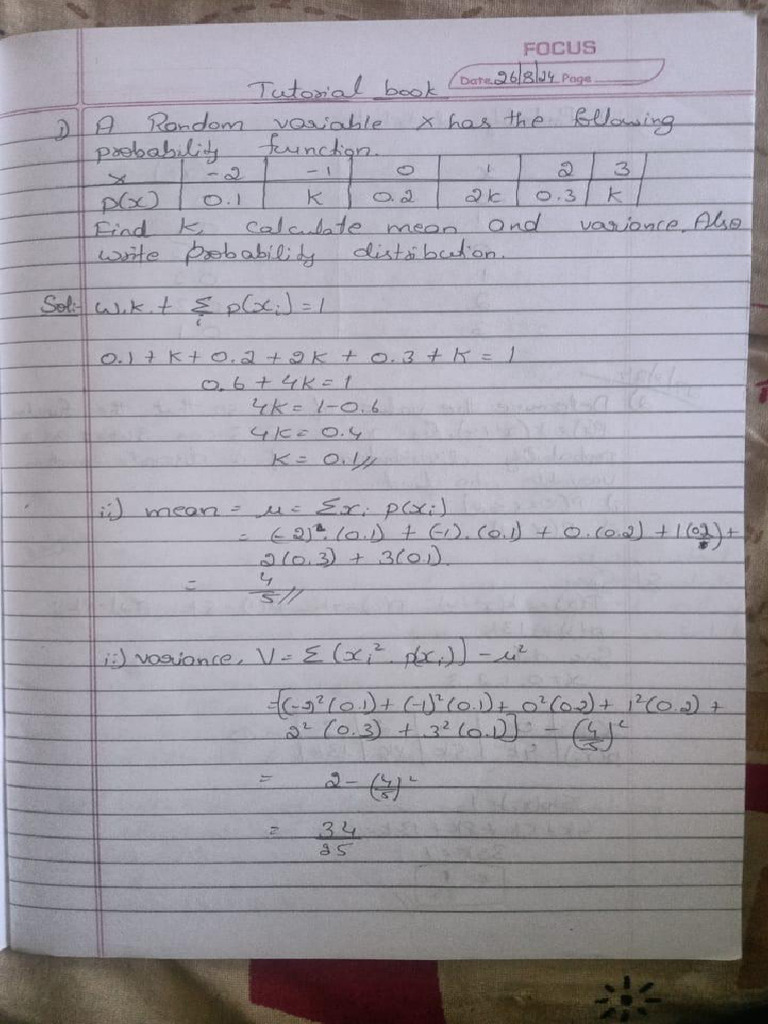 FOCUS
Date 26/8/24 Page
Tutorial book
1) A Random variable x has the following
probability function.
x | -2 | -1 | 0 | 1 | 2 | 3
p(x) | 0.1 | K | 0.2 | 2K | 0.3 | K
Find K, calculate mean and variance. Also
write probability distribution.
Sol:- W.K.t Σi p(xi) = 1
0.1 + K + 0.2 + 2K + 0.3 + K = 1
0.6 + 4K = 1
4K = 1-0.6
4K = 0.4
K = 0.1//
ii) mean = μ = Σxi p(xi)
= (-2).(0.1) + (-1).(0.1) + 0.(0.2) + 1(0.2) +
2(0.3) + 3(0.1).
= 4/5//
ii) variance, V = Σ(xi². p(xi)) - μ²
=[(-2²(0.1) + (-1)²(0.1) + 0²(0.2) + 1²(0.2) +
2²(0.3) + 3²(0.1)] - (4/5)²
= 2 - (4/5)²
= 34/25